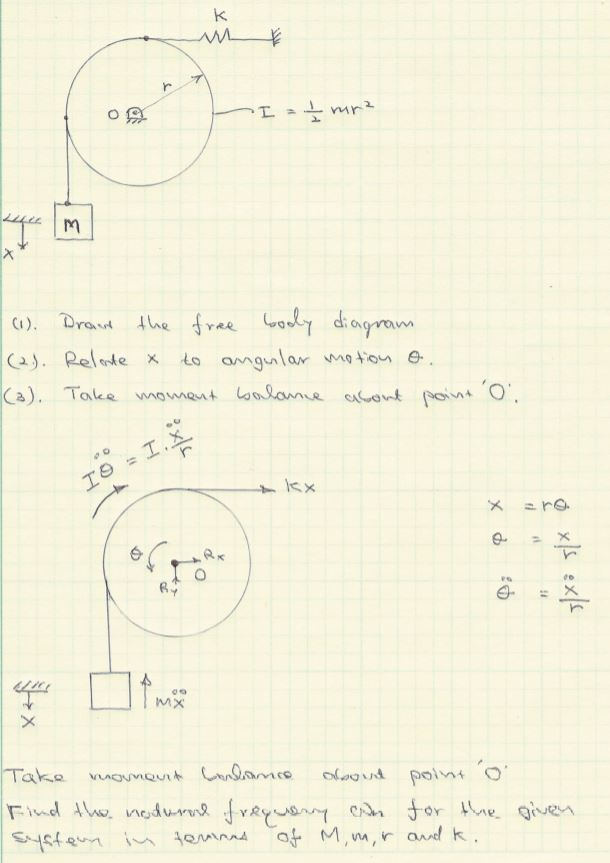 K
r
O
I = 1/2 mr²
M
x
(1). Draw the free body diagram
(2). Relate x to angular motion θ.
(3). Take moment balance about point 'O'.
Iθ̈ = I . ẍ/r
Kx
x = rθ
θ = x/r
θ̈ = ẍ/r
θ
Rx
O
Ry
Mẍ
x
Take moment balance about point 'O'
Find the natural frequency ωn for the given
system in terms of M, m, r and k.